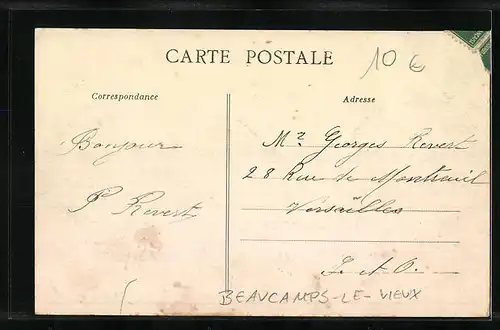 CARTE POSTALE
10 €
Correspondance
Adresse
Bonjour
P Revert
Mr. Georges Revert
28 Rue de Montreuil
Versailles
S. et O.
BEAUCAMPS-LE-VIEUX